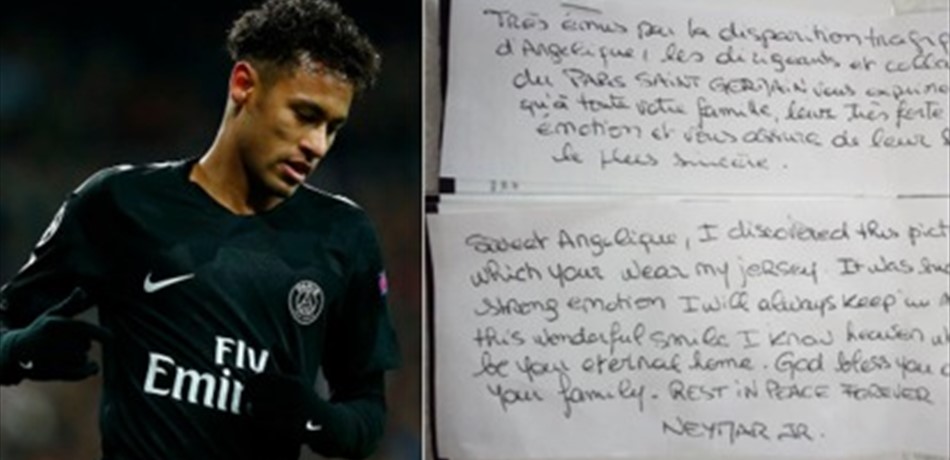 FLY
Emir
PSG
TRÈS émus par la disparition tragiq
d'Angélique, les dirigeants et colla
du PARIS SAINT GERMAIN vous exprime
qu'à toute votre famille, leur très forte
émotion et vous assure de leur s
le plus sincère.
Sweet Angelique, I discovered this pict
which your wear my jersey. It was
strong emotion I will always keep in
this wonderful smile I know heaven w
be your eternal home. God bless you a
your family. REST IN PEACE FOREVER
NEYMAR JR.